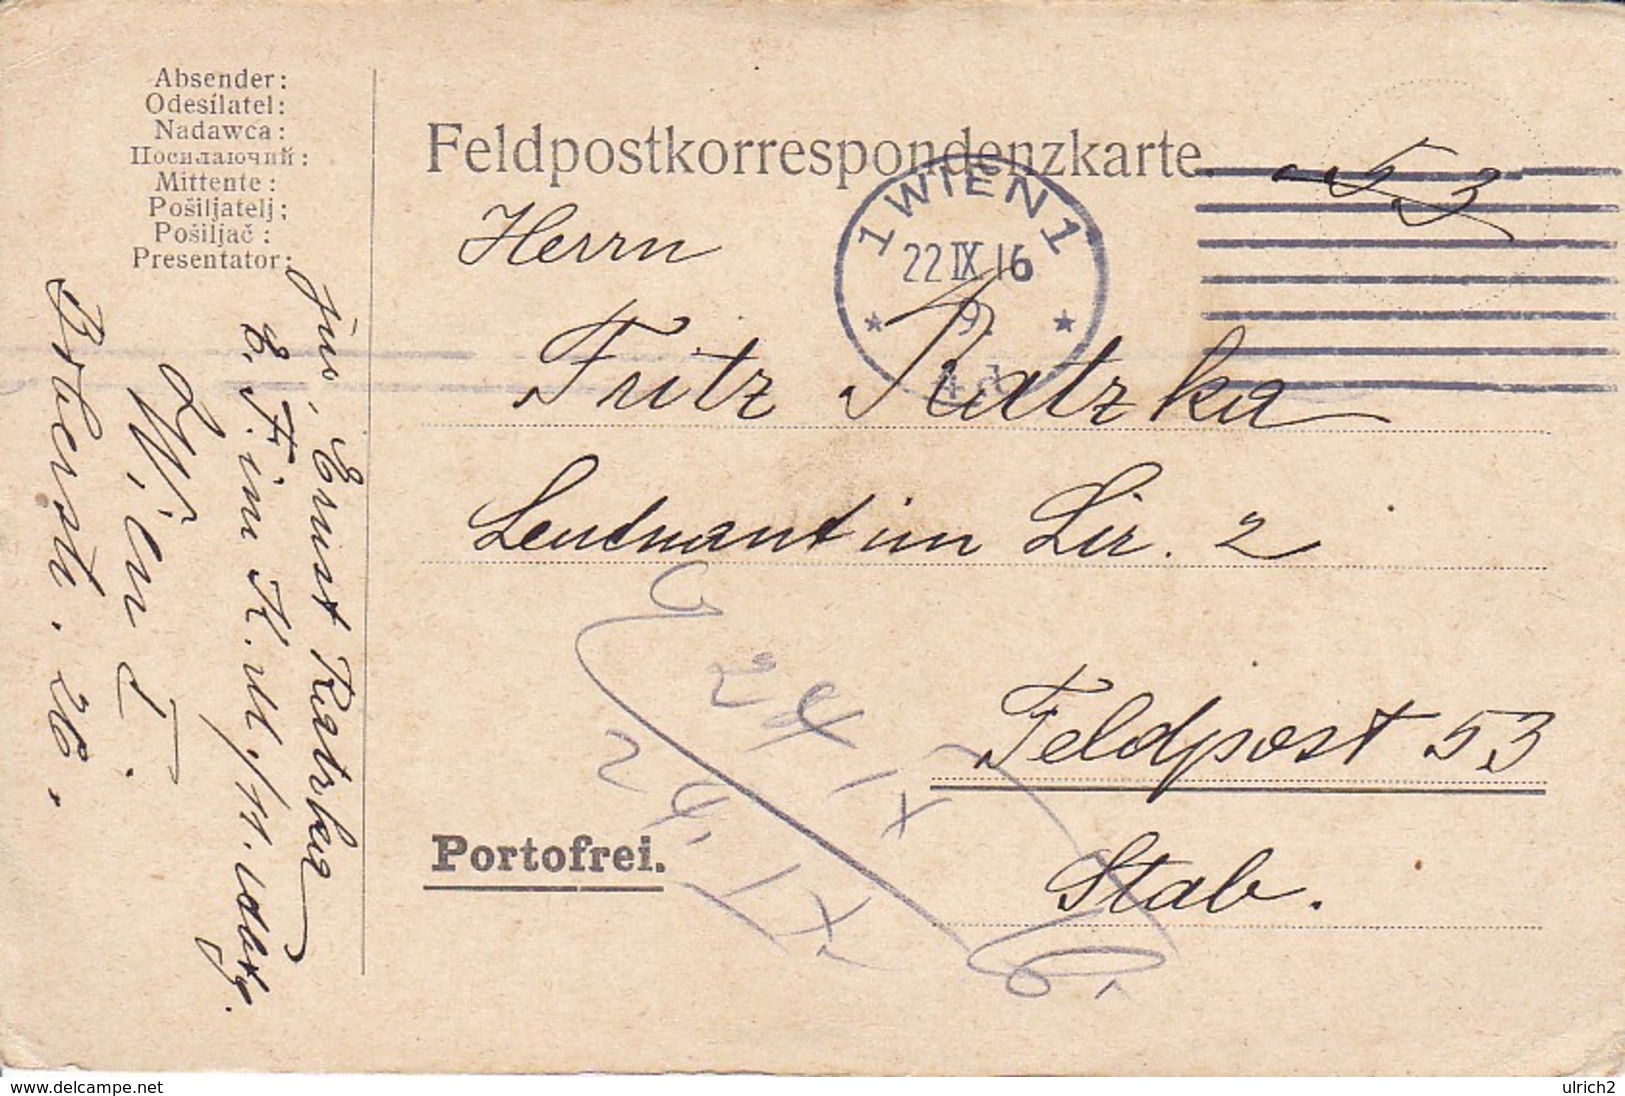 Absender:
Odesílatel:
Nadawca:
Посилаючий:
Mittente:
Pošiljatelj:
Pošiljač:
Presentator:
Feldpostkorrespondenzkarte.
1 WIEN 1
22 IX 16
9.
53
Herrn
Fritz Ratzka
Leutnant im Lir. 2
Feldpost 53
Stab.
Portofrei.
24
IX
24.
IX.
Ernst Ratzka
E. F. im K.
Wien I.
26.
www.delcampe.net
ulrich2